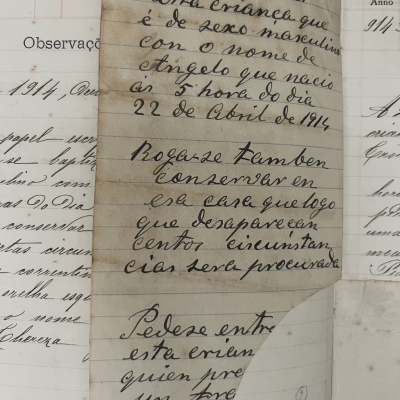 Esta criança que
é de sexo masculino
con o nome de
Angelo que nacio
ás 5 hora do dia
22 de Abril de 1914
Roga-se tamben
conservar en
esa casa que logo
que desaparecan
centos circunstan
cias sera procurada
Pedese entre
esta crian
quien pre
un tra
Observaçõ
1914, Deu
papel escr
se baptiz
ulino com
as do Dia
conservar
rtas circun
correntin
orelha esq
o nome
Anno
914
A